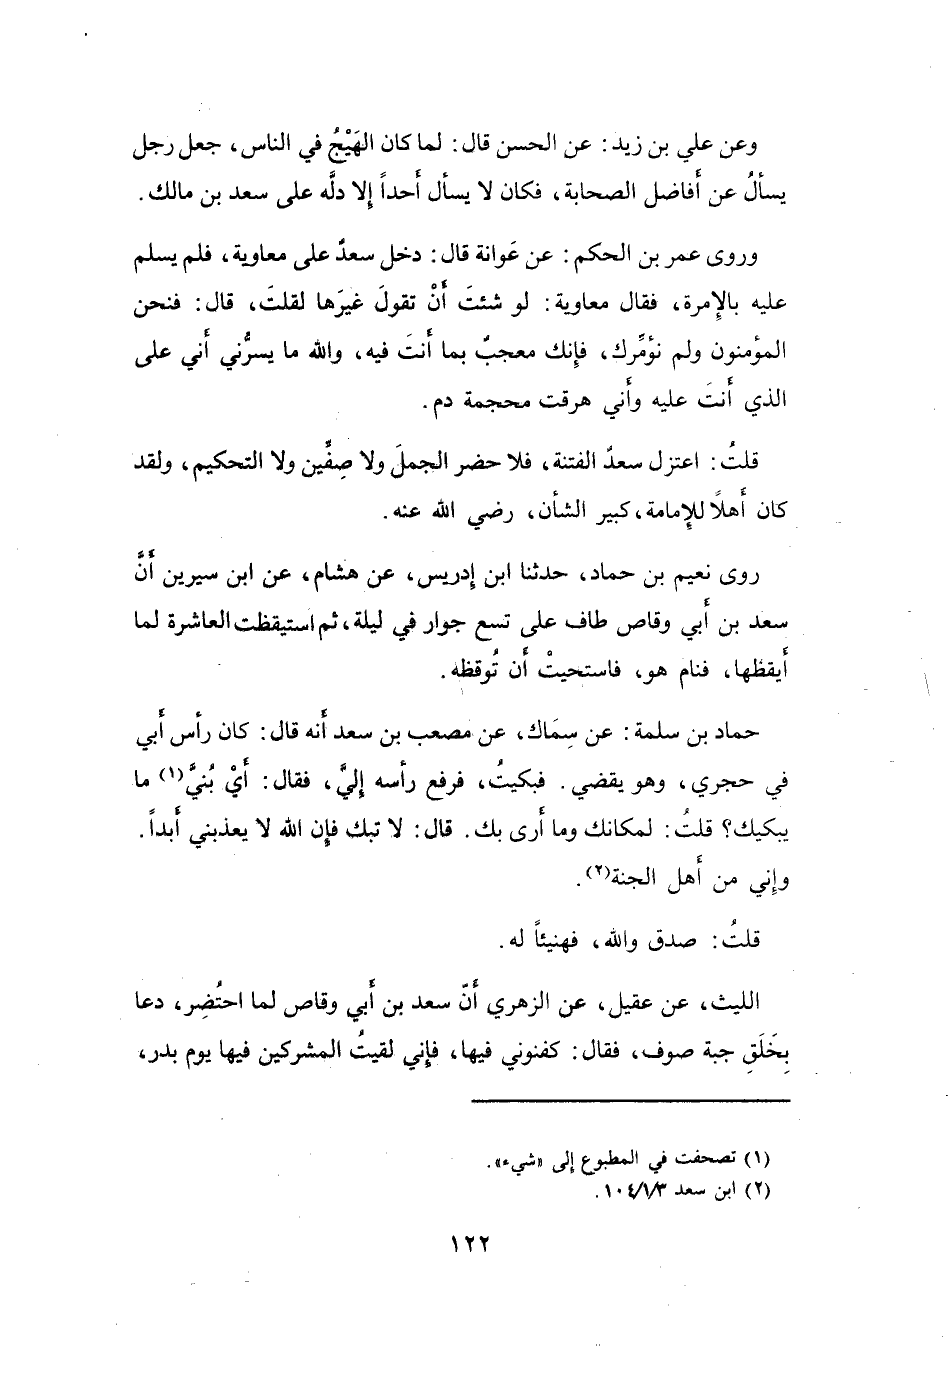 وعن علي بن زيد: عن الحسن قال: لما كان الهَيْجُ في الناس، جعل رجل
يسألُ عن أَفاضل الصحابة، فكان لا يسأل أَحداً إِلا دلَّه على سعد بن مالك.
وروى عمر بن الحكم: عن عَوانة قال: دخل سعدٌ على معاوية، فلم يسلم
عليه بالإِمرة، فقال معاوية: لو شئتَ أَنْ تقولَ غيرَها لقلتَ، قال: فنحن
المؤمنون ولم نؤمِّرك، فإِنك معجبٌ بما أَنتَ فيه، والله ما يسرُّني أَني على
الذي أَنتَ عليه وأَني هرقت محجمة دم.
قلتُ: اعتزل سعدٌ الفتنة، فلا حضر الجملَ ولا صِفِّين ولا التحكيم، ولقد
كان أَهلاً للإِمامة، كبير الشأن، رضي الله عنه.
روى نعيم بن حماد، حدثنا ابن إِدريس، عن هشام، عن ابن سيرين أَنَّ
سعد بن أَبي وقاص طاف على تسع جوار في ليلة، ثم استيقظت العاشرة لما
أَيقظها، فنام هو، فاستحيتْ أَن تُوقظه.
حماد بن سلمة: عن سِمَاك، عن مصعب بن سعد أَنه قال: كان رأس أَبي
في حجري، وهو يقضي. فبكيتُ، فرفع رأسه إِليَّ، فقال: أَيْ بُنيَّ(١) ما
يبكيك؟ قلتُ: لمكانك وما أَرى بك. قال: لا تبك فإِن الله لا يعذبني أَبداً.
وإِني من أَهل الجنة(٢).
قلتُ: صدق والله، فهنيئاً له.
الليث، عن عقيل، عن الزهري أَنّ سعد بن أَبي وقاص لما احتُضِر، دعا
بِخَلَقِ جبة صوف، فقال: كفنوني فيها، فإِني لقيتُ المشركين فيها يوم بدر،
(١) تصحفت في المطبوع إلى «شيء».
(٢) ابن سعد ١٠٤/١/٣.
١٢٢